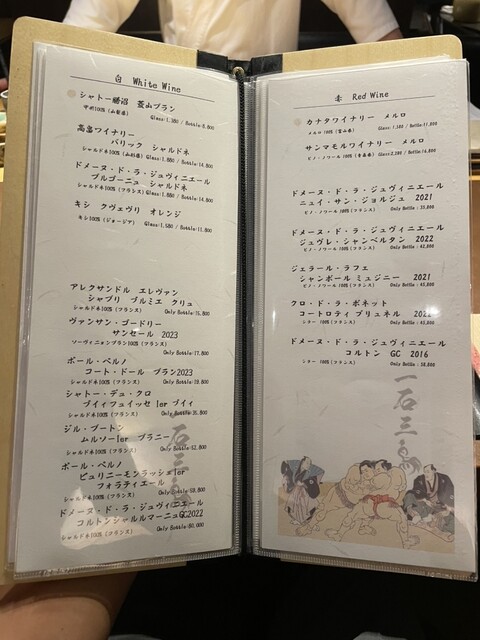 白 White Wine
シャトー勝沼 菱山ブラン
甲州100%(山梨県) Glass:1,380 / Bottle:8,800
高畠ワイナリー
バリック シャルドネ
シャルドネ100%(山形県) Glass:1,880 / Bottle:14,800
ドメーヌ・ド・ラ・ジュヴィニエール
ブルゴーニュ シャルドネ
シャルドネ100%(フランス) Glass:1,880 / Bottle:14,800
キシ クヴェヴリ オレンジ
キシ100%(ジョージア) Glass:1,580 / Bottle:11,800
アレクサンドル エレヴァン
シャブリ プルミエ クリュ
シャルドネ100%(フランス) Only Bottle:15,800
ヴァンサン・ゴードリー
サンセール 2023
ソーヴィニヨンブラン100%(フランス)
Only Bottle:17,800
ポール・ペルノ
コート・ドール ブラン2023
シャルドネ100%(フランス) Only Bottle:19,800
シャトー・デュ・クロ
プイィフュイッセ 1er プイィ
シャルドネ100%(フランス) Only Bottle:35,800
ジル・ブートン
ムルソー1er ブラニー
シャルドネ100%(フランス) Only Bottle:52,800
ポール・ペルノ
ピュリニーモンラッシェ1er
フォラティエール
シャルドネ100%(フランス) Only Bottle:59,800
ドメーヌ・ド・ラ・ジュヴィニエール
コルトンシャルルマーニュGC2022
シャルドネ100%(フランス) Only Bottle:80,000
赤 Red Wine
カナタワイナリー メルロ
メルロ 100%(富山県) Glass:1,580 / Bottle:11,800
サンマモルワイナリー メルロ
ピノ・ノワール 100%(青森県) Glass:2,380 / Bottle:16,800
ドメーヌ・ド・ラ・ジュヴィニエール
ニュイ・サン・ジョルジュ 2021
ピノ・ノワール 100%(フランス) Only Bottle:35,800
ドメーヌ・ド・ラ・ジュヴィニエール
ジュヴレ・シャンベルタン 2022
ピノ・ノワール 100%(フランス) Only Bottle:42,800
ジェラール・ラフェ
シャンボール ミュジニー 2021
ピノ・ノワール 100%(フランス) Only Bottle:45,800
クロ・ド・ラ・ボネット
コートロティ プリュネル
シラー 100%(フランス) Only Bottle:45,800
ドメーヌ・ド・ラ・ジュヴィニエール
コルトン GC 2016
シラー 100%(フランス) Only Bottle:58,800
一石三